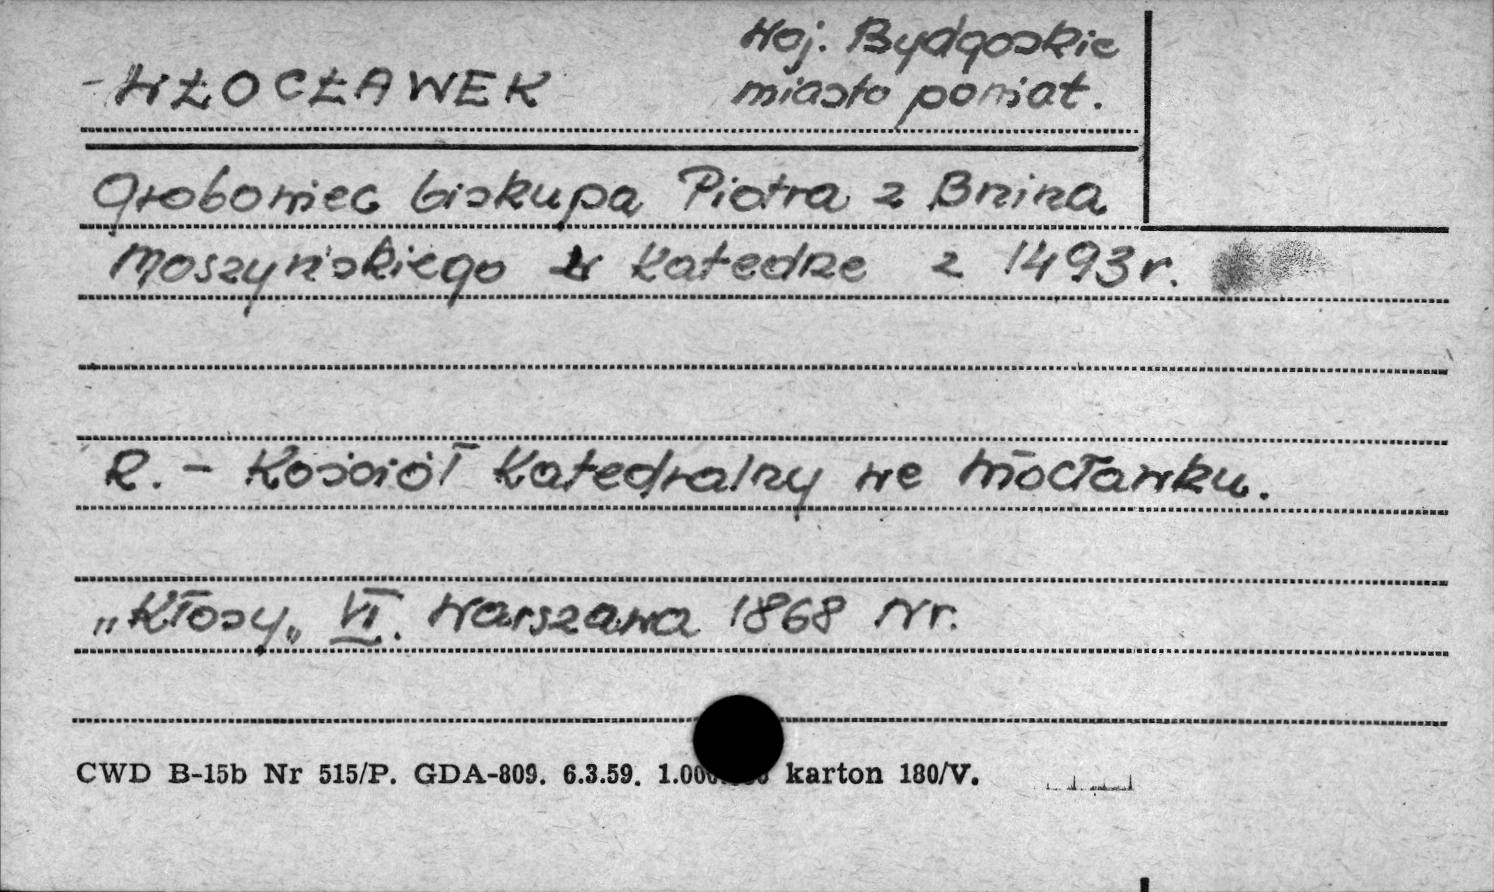 - WŁOCŁAWEK
Woj. Bydgoskie
miasto powiat.
Grobowiec biskupa Piotra z Bnina
Moszyńskiego w Katedrze z 1493 r.
R. - Kościół Katedralny we Włocławku.
„Kłosy„ VI. Warszawa 1868 Nr.
CWD B-15b Nr 515/P. GDA-809. 6.3.59. karton 180/V.